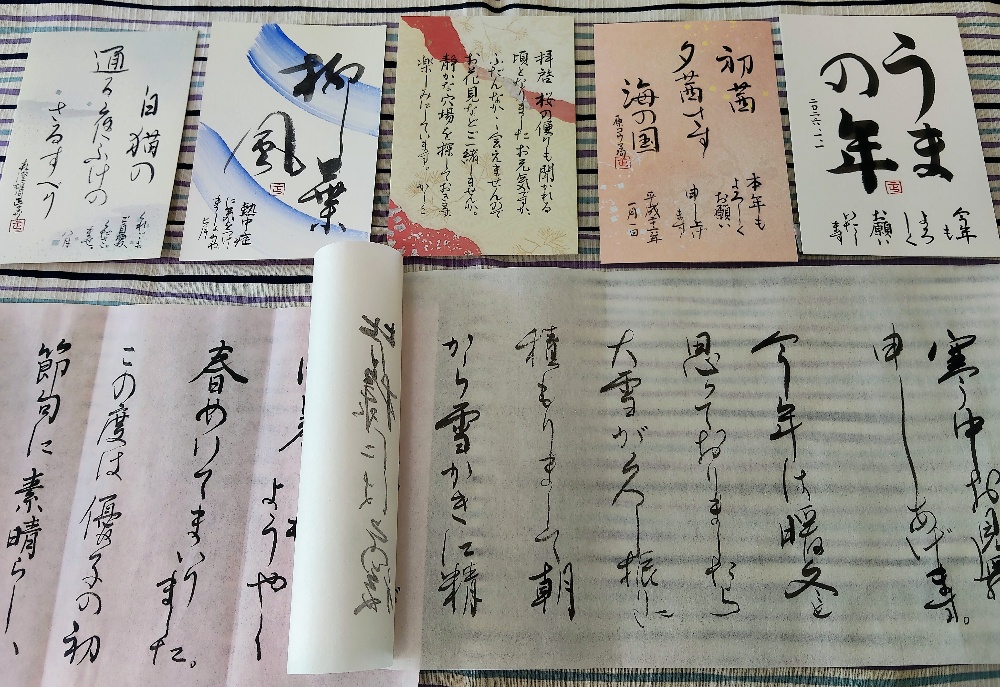 うま
の年
二〇二六・一・一
今年も
よろしく
お願い
初茜
夕茜さす
海の国
本年も
よろしく
お願い
申し上げ
ます
平成十一年
一月一日
拝啓 桜の便りも聞かれる
頃となりました お元気ですか。
ふだんなかなか会えませんので
お花見などご一緒しませんか。
静かな穴場を探しておきます。
楽しみにしています。かしこ
柳葉
風
熱中症
に気をつけ
ましょうね
七月
白猫の
通る
さるすべり
八月
寒中お見舞
申しあげます。
今年は暖冬と
思っておりましたら
大雪が久し振りに
積もりまして朝
から雪かきに精
ようやく
春めいてまいり
ました。
この度は優子の初
節句に素晴らし